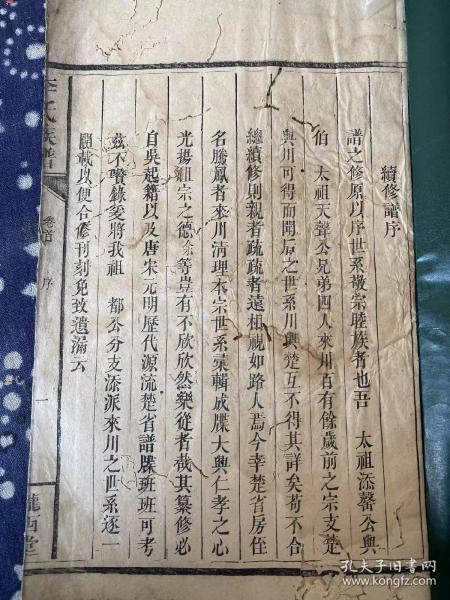 續修譜序
譜之修原以序世系敬宗睦族者也吾　太祖添馨公與
伯　太祖天聲公兄弟四人來川百有餘歲前之宗支楚
與川可得而聞后之世系川與楚互不得其詳矣苟不合
總續修則親者疏疏者遠相視如路人焉今幸楚省房侄
名騰鳳者來川清理本宗世系彙輯成牒大興仁孝之心
光揚祖宗之德余等豈有不欣欣然樂從者哉其纂修必
自吳起籍以及唐宋元明歷代源流楚省譜牒班班可考
茲不贅錄爰將我祖　都公分支添派來川之世系逐一
闢載以便合修刊刻免致遺漏云
李氏族譜
卷首
序
一
隴西堂
孔夫子旧书网
www.kongfz.com